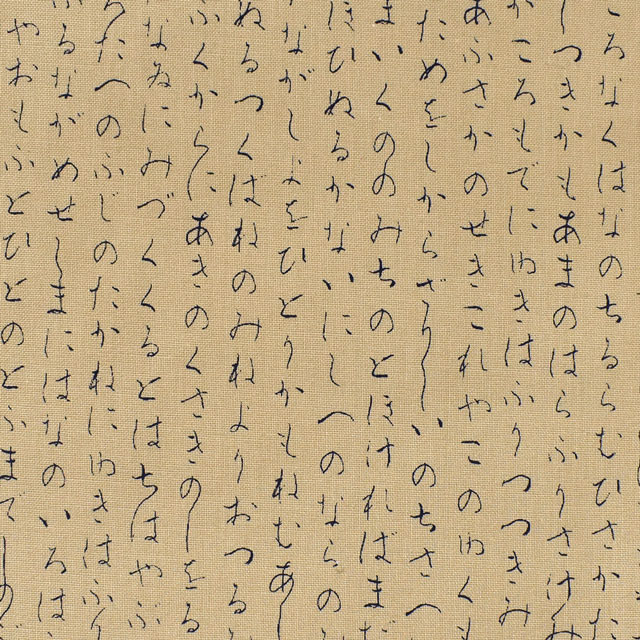 ころなくはなのちるらむひさかた
しつきかもあまのはらふりさけみ
かころもでにゆきはふりつつきみ
あふさかのせきこれやこのゆくも
ためをしからざりしいのちさへ
まいくののみちのとほければまだ
ほひぬるかないにしへのならの
ながしよをひとりかもねむあし
ぬるつくはねのみねよりおつる
ふくからにあきのくさきのしをる
なゐにみづくくるとはちはやぶ
ろたへのふじのたかねにゆきはふり
ふるながめせしまにはなのいろは
やおもふとひとのとふまでしの